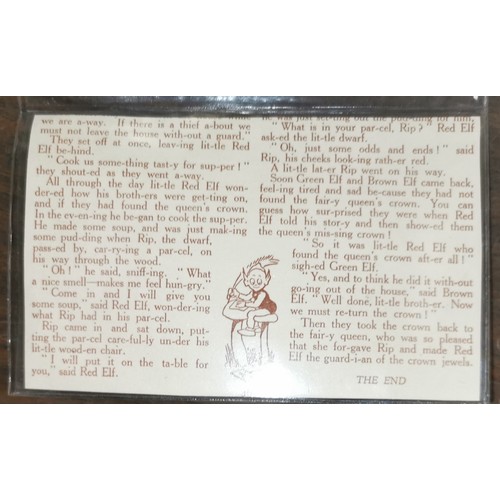 we are a-way. If there is a thief a-bout we
must not leave the house with-out a guard."
They set off at once, leav-ing lit-tle Red
Elf be-hind.
" Cook us some-thing tast-y for sup-per ! "
they shout-ed as they went a-way.
All through the day lit-tle Red Elf won-
der-ed how his broth-ers were get-ting on,
and if they had found the queen's crown.
In the ev-en-ing he be-gan to cook the sup-per.
He made some soup, and was just mak-ing
some pud-ding when Rip, the dwarf,
pass-ed by, car-ry-ing a par-cel, on
his way through the wood.
" Oh ! " he said, sniff-ing. " What
a nice smell—makes me feel hun-gry."
" Come in and I will give you
some soup," said Red Elf, won-der-ing
what Rip had in his par-cel.
Rip came in and sat down, put-
ting the par-cel care-ful-ly un-der his
lit-tle wood-en chair.
" I will put it on the ta-ble for
you," said Red Elf.
he was just set-ting out the pud-ding for him,
" What is in your par-cel, Rip ? " Red Elf
ask-ed the lit-tle dwarf.
" Oh, just some odds and ends ! " said
Rip, his cheeks look-ing rath-er red.
A lit-tle lat-er Rip went on his way.
Soon Green Elf and Brown Elf came back,
feel-ing tired and sad be-cause they had not
found the fair-y queen's crown. You can
guess how sur-prised they were when Red
Elf told his stor-y and then show-ed them
the queen's mis-sing crown !
" So it was lit-tle Red Elf who
found the queen's crown aft-er all ! "
sigh-ed Green Elf.
" Yes, and to think he did it with-out
go-ing out of the house," said Brown
Elf. " Well done, lit-tle broth-er. Now
we must re-turn the crown ! "
Then they took the crown back to
the fair-y queen, who was so pleased
that she for-gave Rip and made Red
Elf the guard-i-an of the crown jewels.
THE END